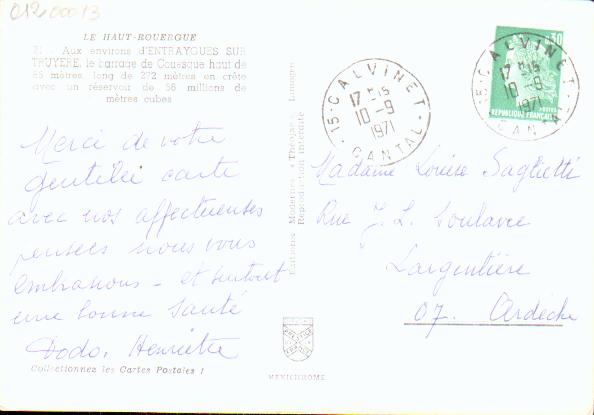 01200013
LE HAUT-ROUERGUE
Aux environs d'ENTRAYGUES SUR
TRUYERE, le barrage de Couesque haut de
65 mètres, long de 272 mètres en crête
avec un réservoir de 56 millions de
mètres cubes
Merci de votre
gentille carte
avec nos affectueuses
pensées nous vous
embrassons - et surtout
une bonne santé
Dodo. Henriette
Collectionnez les Cartes Postales !
Editions Modernes « Théojac » Limoges
Reproduction interdite
MEXICHROME
15 - CALVINET
17 H 15
10 - 9
1971
CANTAL
15 - CALVINET
17 H 15
10 - 9
1971
CANTAL
REPUBLIQUE FRANÇAISE
Madame Louise Saglietti
Rue J. L. Soulavie
Largentière
07. Ardèche